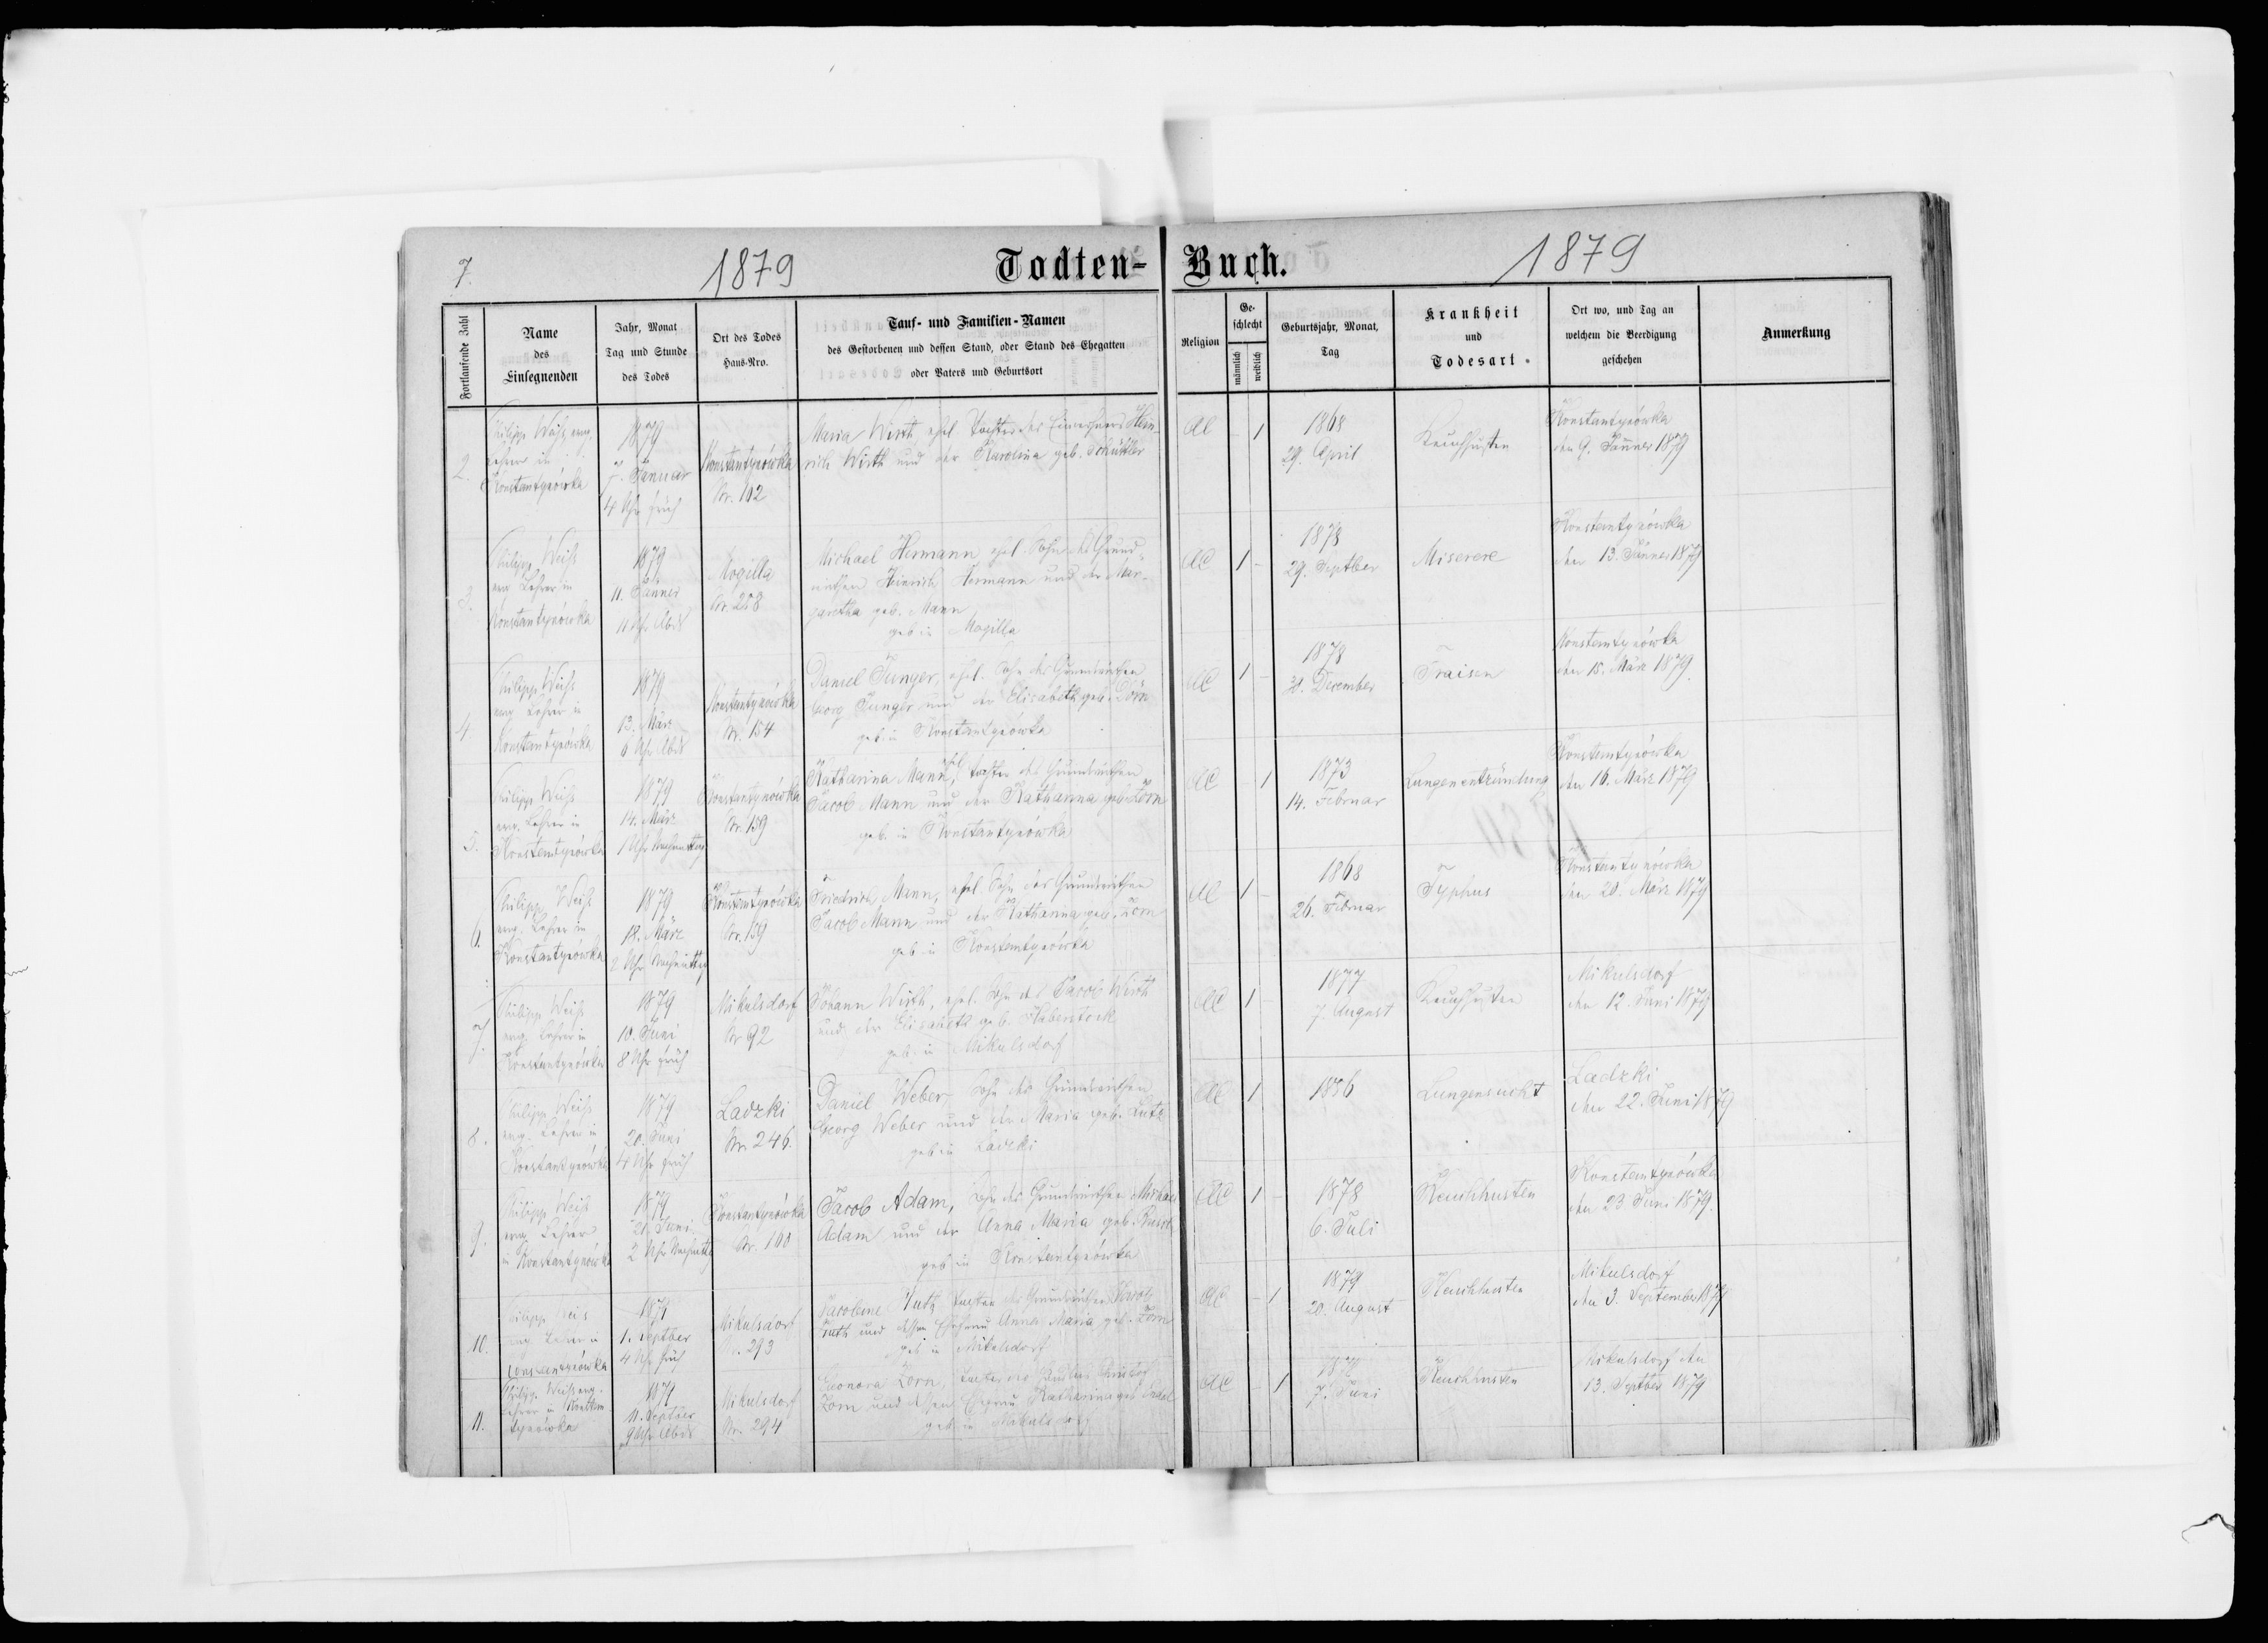 7.
1879
Todten-
Buch.
1879
Fortlaufende Zahl
Name
des
Einsegnenden
Jahr, Monat
Tag und Stunde
des Todes
Ort des Todes
Haus-Nro.
Tauf- und Familien-Namen
des Gestorbenen und dessen Stand, oder Stand des Ehegatten
oder Vaters und Geburtsort
Religion
Ge-
schlecht
männlich
weiblich
Geburtsjahr, Monat,
Tag
Krankheit
und
Todesart
Ort wo, und Tag an
welchem die Beerdigung
geschehen
Anmerkung
2.
Philipp Weiß, evng.
Lehrer in
Konstantynówka
1879
7. Januar
4 Uhr früh
Konstantynówka
Nr. 102
Maria Wirth, ehel. Tochter des Einwohners Hein-
rich Wirth und der Karolina geb. Schüttler
AC
1
1868
29. April
Keuchhusten
Konstantynówka
den 9. Jänner 1879
3.
Philipp Weiß
evng. Lehrer in
Konstantynówka
1879
11. Jänner
11 Uhr Abds
Mogilla
Nr. 258
Michael Hermann ehel. Sohn des Grund-
wirthen Heinrich Hermann und der Mar-
garetha geb. Mann
geb in Mogilla
AC
1
1878
29. Septber
Miserere
Konstantynówka
den 13. Jänner 1879
4.
Philipp Weiß
evng. Lehrer in
Konstantynówka
1879
13. März
6 Uhr Abds
Konstantynówka
Nr. 154
Daniel Junger, ehel. Sohn des Grundwirthen
Georg Junger und der Elisabeth geb. Dörn
geb. in Konstantynówka
AC
1
1878
31. December
Fraisen
Konstantynówka
den 15. März 1879.
5.
Philipp Weiß
evng. Lehrer in
Konstantynówka
1879
14. März
1 Uhr Nachmittag
Konstantynówka
Nr. 159
Katharina Mann, ehel. Tochter des Grundwirthen
Jacob Mann und der Katharina geb. Zorn
geb. in Konstantynówka
AC
1
1873
14. Februar
Lungenentzündung
Konstantynówka
den 16. März 1879
6.
Philipp Weiß
evng. Lehrer in
Konstantynówka
1879
18. März
2 Uhr Nachmittag
Konstantynówka
Nr. 159
Friedrich Mann, ehel. Sohn des Grundwirthen
Jacob Mann und der Katharina geb. Zorn
geb. in Konstantynówka
AC
1
1868
26. Februar
Typhus
Konstantynówka
den 20. März 1879
7.
Philipp Weiß
evng. Lehrer in
Konstantynówka
1879
10. Juni
8 Uhr früh
Mikulsdorf
Nr 92
Johann Wirth, ehel. Sohn des Jacob Wirth
und der Elisabeth geb. Haberstock
geb. in Mikulsdorf
AC
1
1877
7. August
Keuchhusten
Mikulsdorf
den 12. Juni 1879
8.
Philipp Weiß
evng. Lehrer in
Konstantynówka
1879
20. Juni
4 Uhr früh
Ladzki
Nr. 246.
Daniel Weber Sohn des Grundwirthen
Georg Weber und der Maria geb. Lutz
geb in Ladzki
AC
1
1856
Lungensucht
Ladzki
den 22. Juni 1879
9.
Philipp Weiß
evng. Lehrer
in Konstantynówka
1879
21. Juni
2 Uhr Nachmittg
Konstantynówka
Nr. 100
Jacob Adam, Sohn des Grundwirthen Michael
Adam und der Anna Maria geb.
geb in Konstantynówka
AC
1
1878
6. Juli
Keuchhusten
Konstantynówka
den 23 Juni 1879.
10.
Philipp Weis
evng. Lehrer in
Konstantynówka
1879
1. Septber
4 Uhr früh
Mikulsdorf
Nr. 293
Jacobine Huth Tochter des Grundwirthen Jacob
Huth und dessen Ehefrau Anna Maria geb. Zorn
geb in Mikulsdorf
AC
1
1879
20. August
Keuchhusten
Mikulsdorf
den 3. September 1879
11.
Philipp Weiß evng.
Lehrer in Konstan-
tynówka
1879
11. Septber
9 Uhr Abds
Mikulsdorf
Nr. 294
Eleonora Zorn, Tochter des
Zorn und dessen Ehefrau Katharina geb
geb in Mikulsdorf
AC
1
7. Juni
Keuchhusten
Mikulsdorf den
13. Septber 1879